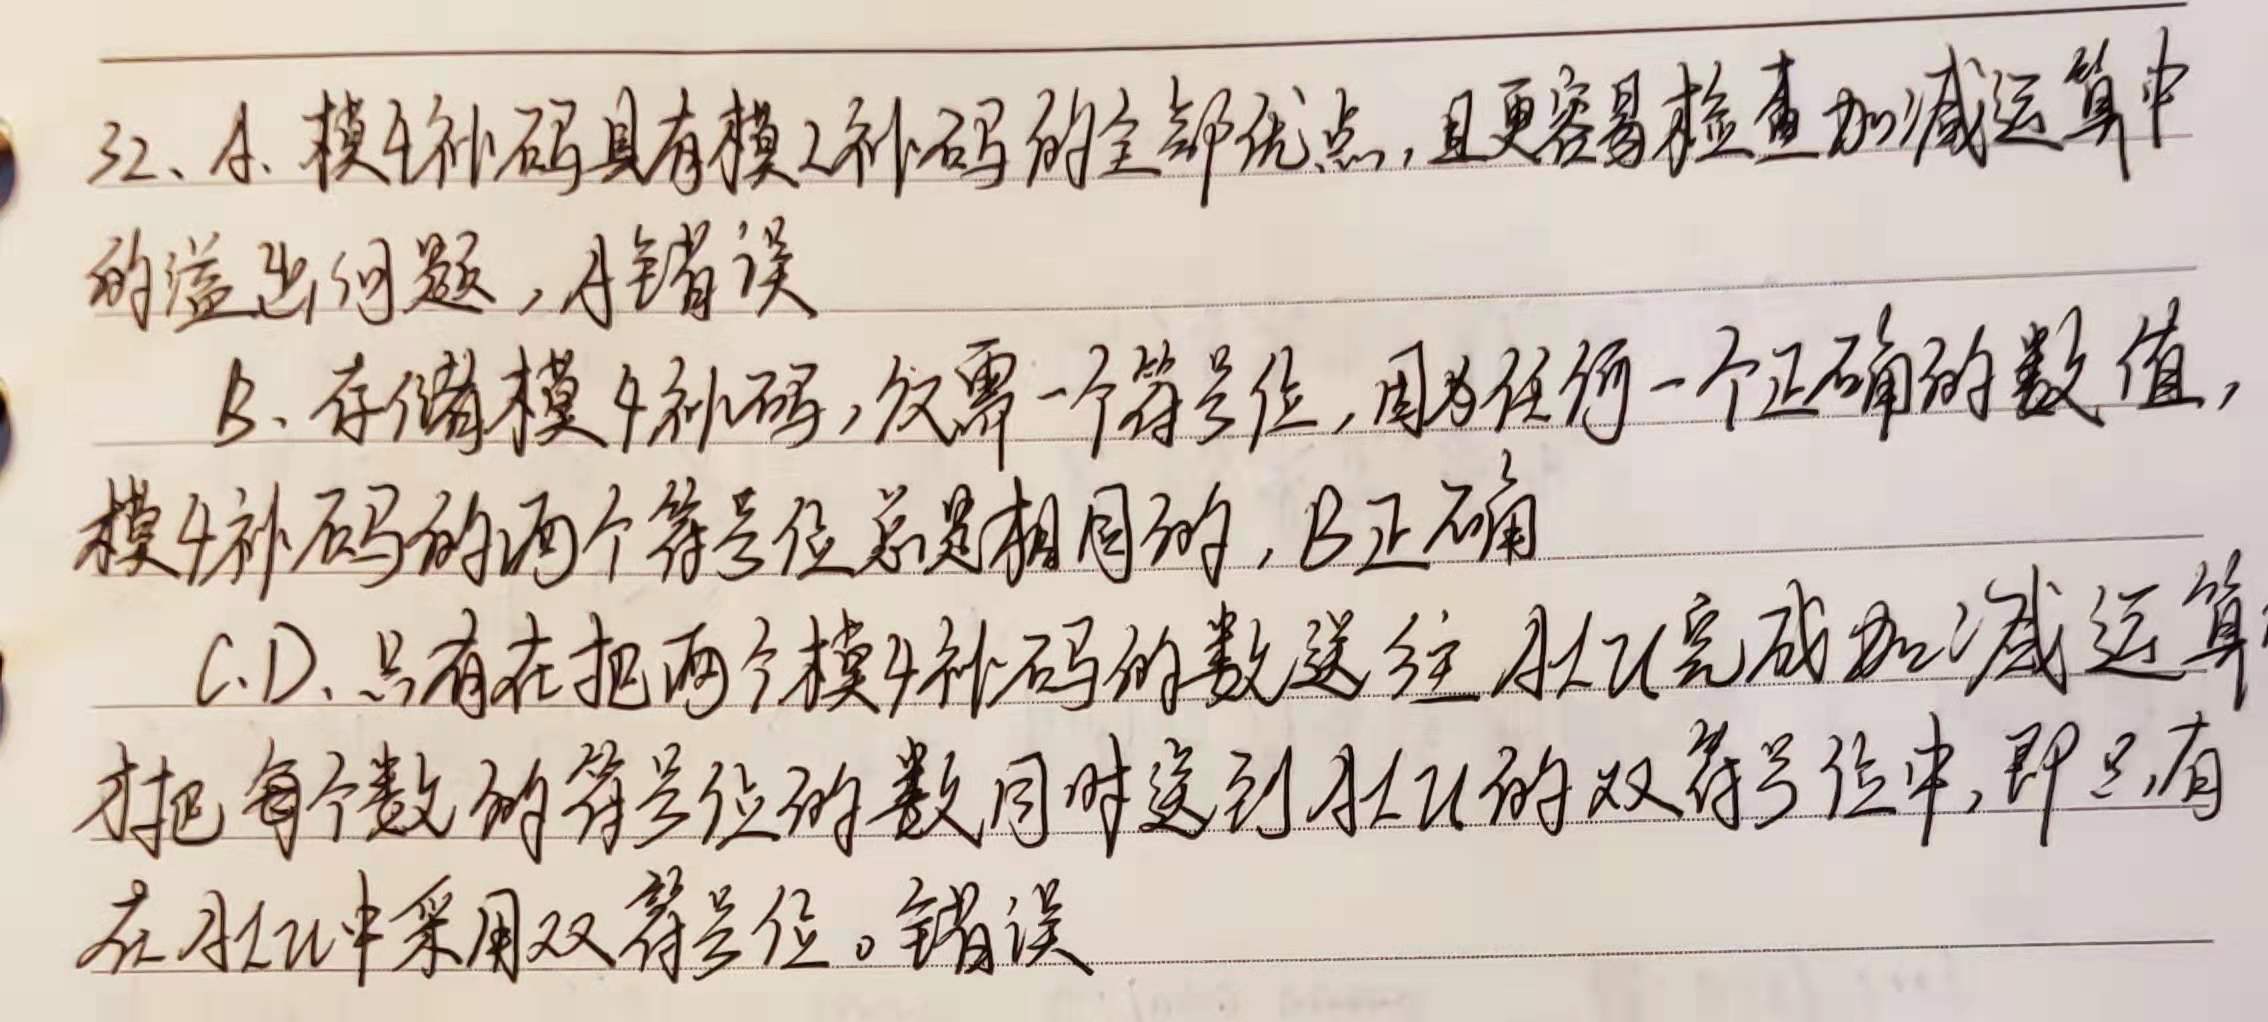 32、A. 模4补码具有模2补码的全部优点,且更容易检查加减运算中
的溢出问题,A错误
B、存储模4补码,仅需一个符号位,因为任何一个正确的数值,
模4补码的两个符号位总是相同的,B正确
C.D、只有在把两个模4补码的数送往ALU完成加减运算
才把每个数的符号位的数同时送到ALU的双符号位中,即只有
在ALU中采用双符号位。错误